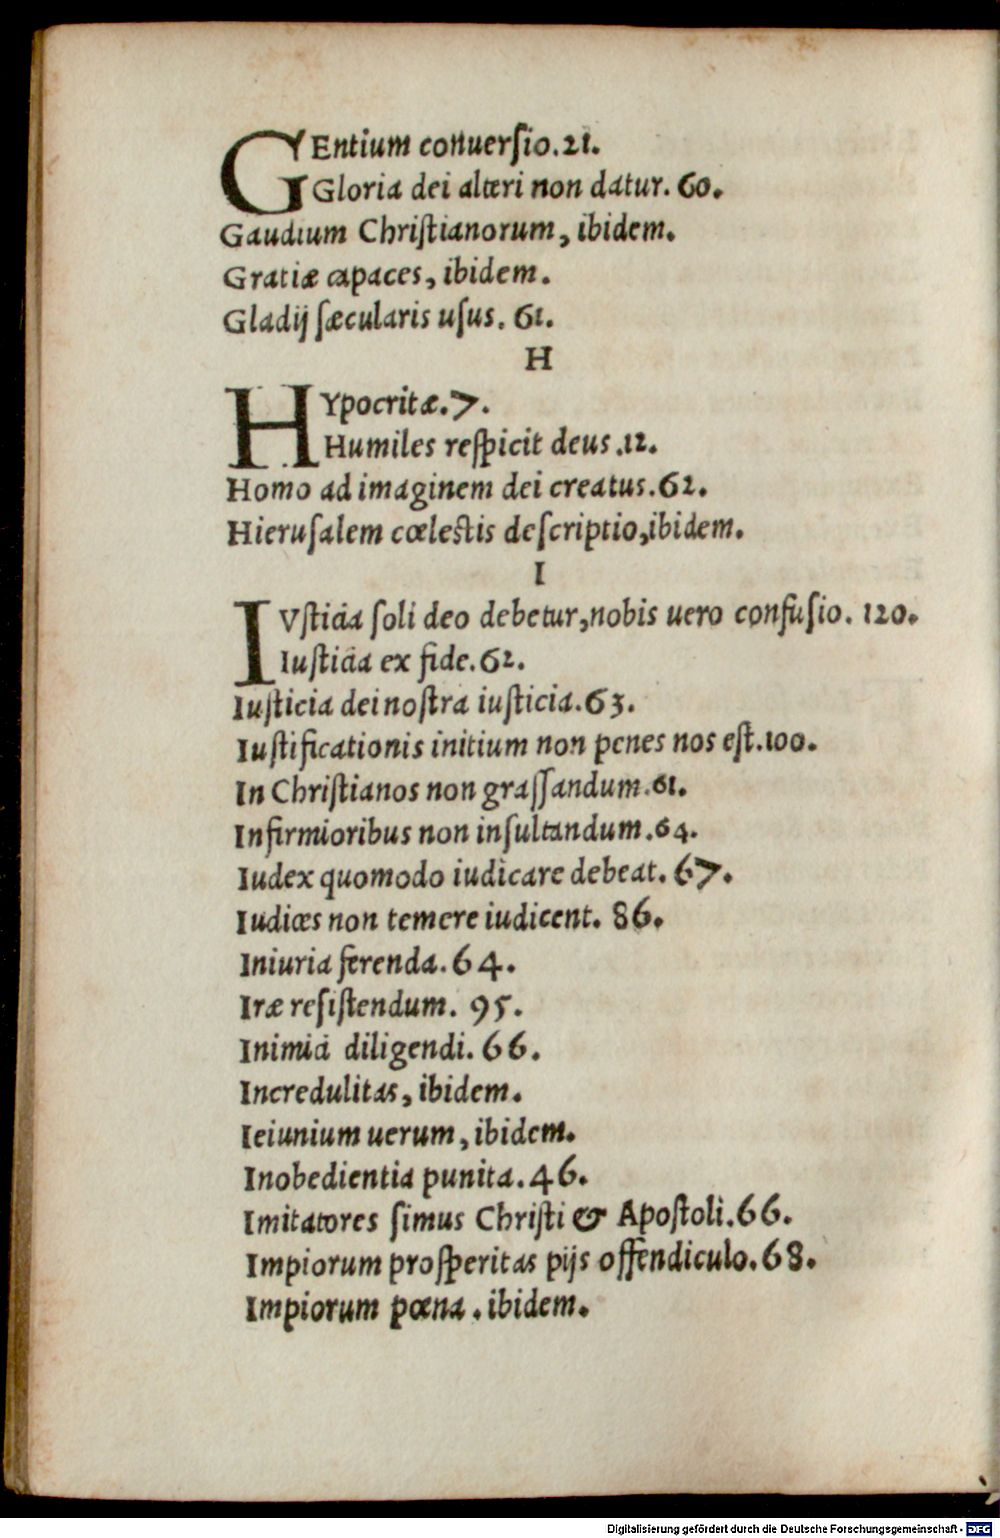 GEntium conuerſio.21.
Gloria dei alteri non datur. 60.
Gaudium Chriſtianorum, ibidem.
Gratiæ capaces, ibidem.
Gladij ſæcularis uſus. 61.
H
HYpocritæ.7.
Humiles reſpicit deus.12.
Homo ad imaginem dei creatus.62.
Hieruſalem cœleſtis deſcriptio,ibidem.
I
IVſticia ſoli deo debetur,nobis uero confuſio. 120.
Iuſticia ex fide.62.
Iuſticia dei noſtra iuſticia.63.
Iuſtificationis initium non penes nos eſt.100.
In Chriſtianos non graſſandum.61.
Infirmioribus non inſultandum.64.
Iudex quomodo iudicare debeat. 67.
Iudices non temere iudicent. 86.
Iniuria ferenda.64.
Iræ reſiſtendum. 95.
Inimici diligendi. 66.
Incredulitas, ibidem.
Ieiunium uerum, ibidem.
Inobedientia punita.46.
Imitatores ſimus Chriſti & Apoſtoli.66.
Impiorum proſperitas pijs offendiculo.68.
Impiorum pœna. ibidem.
Digitalisierung gefördert durch die Deutsche Forschungsgemeinschaft - DFG